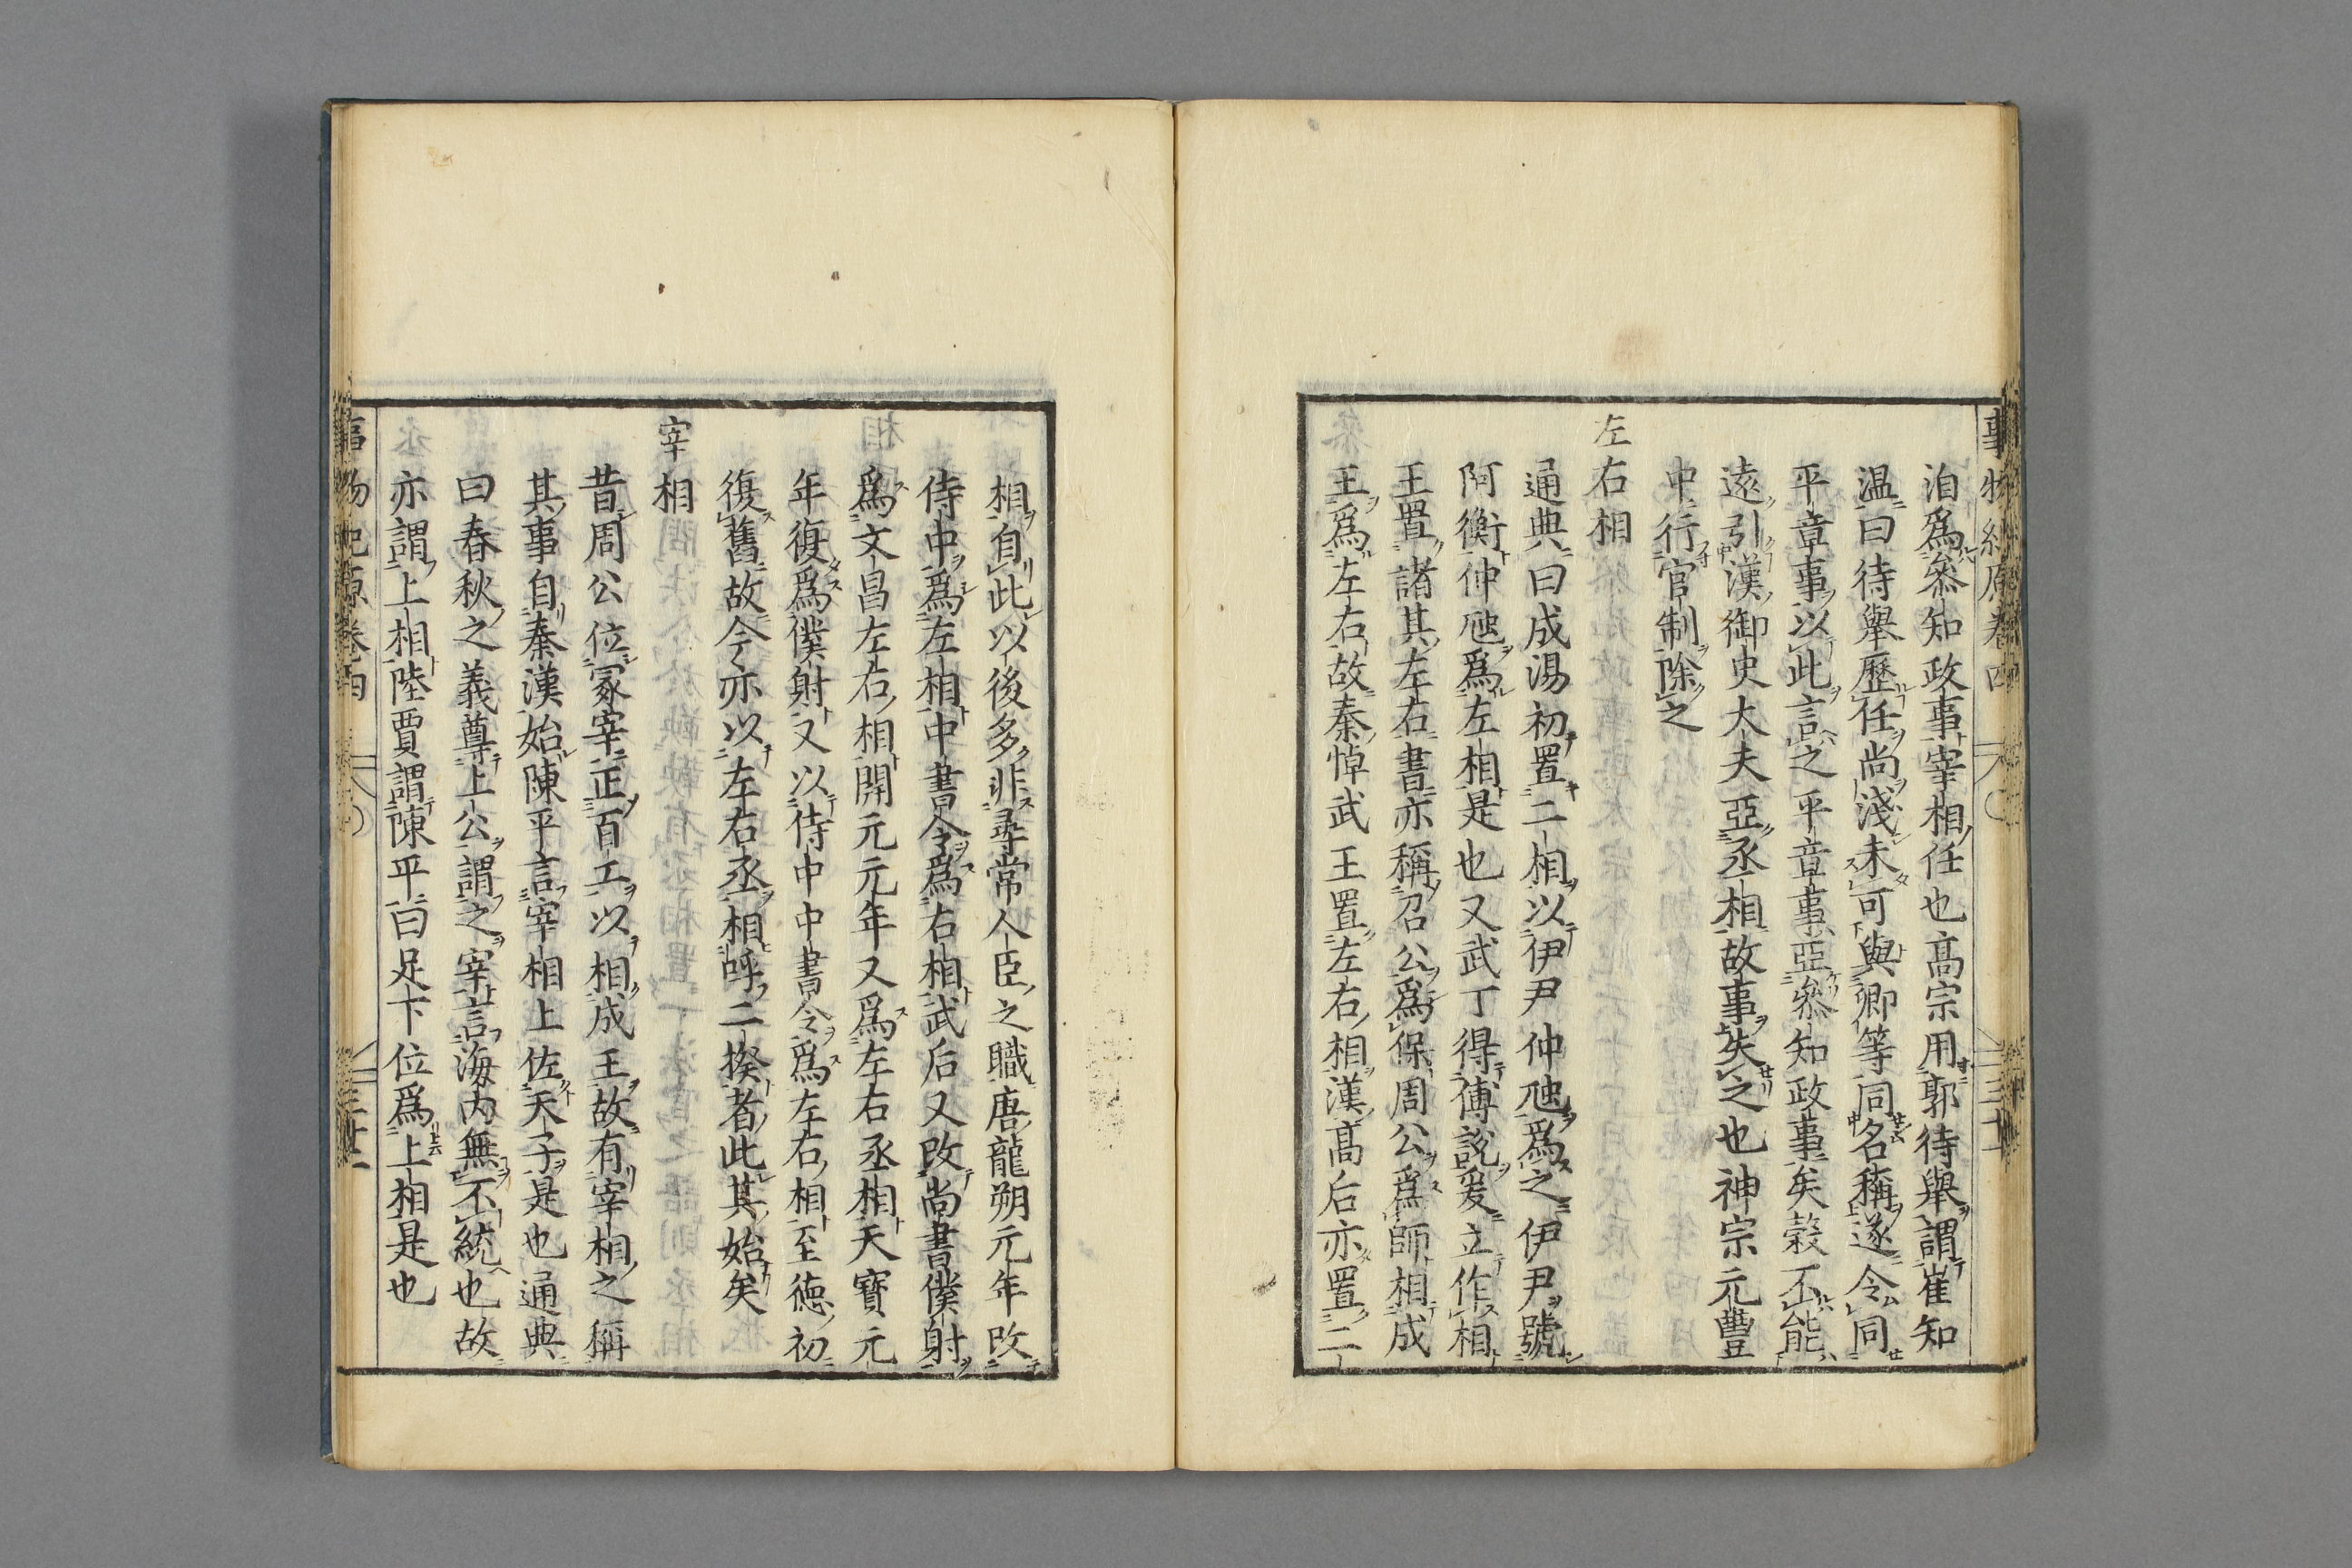 洎爲叅知政事宰相任也高宗用郭待舉謂崔知
温曰待舉歷任尚淺未可與卿等同名稱遂令同
平章事以此言之平章事亞叅知政事矣穀不能
遠引漢御史大夫亞丞相故事失之也神宗元豐
中行官制除之
左右相
通典曰成湯初置二相以伊尹仲虺爲之伊尹號
阿衡仲虺爲左相是也又武丁得傅說爰立作相
王置諸其左右書亦稱召公爲保周公爲師相成
王爲左右故秦悼武王置左右相漢高后亦置二
相自此以後多非尋常人臣之職唐龍朔元年改
侍中爲左相中書令爲右相武后又改尚書僕射
爲文昌左右相開元元年又爲左右丞相天寶元
年復爲僕射又以侍中中書令爲左右相至德初
復舊故今亦以左右丞相呼二揆者此其始矣
宰相
昔周公位冢宰正百工以相成王故有宰相之稱
其事自秦漢始陳平言宰相上佐天子是也通典
曰春秋之義尊上公謂之宰言海内無不統也故
亦謂上相陸賈謂陳平曰足下位爲上相是也